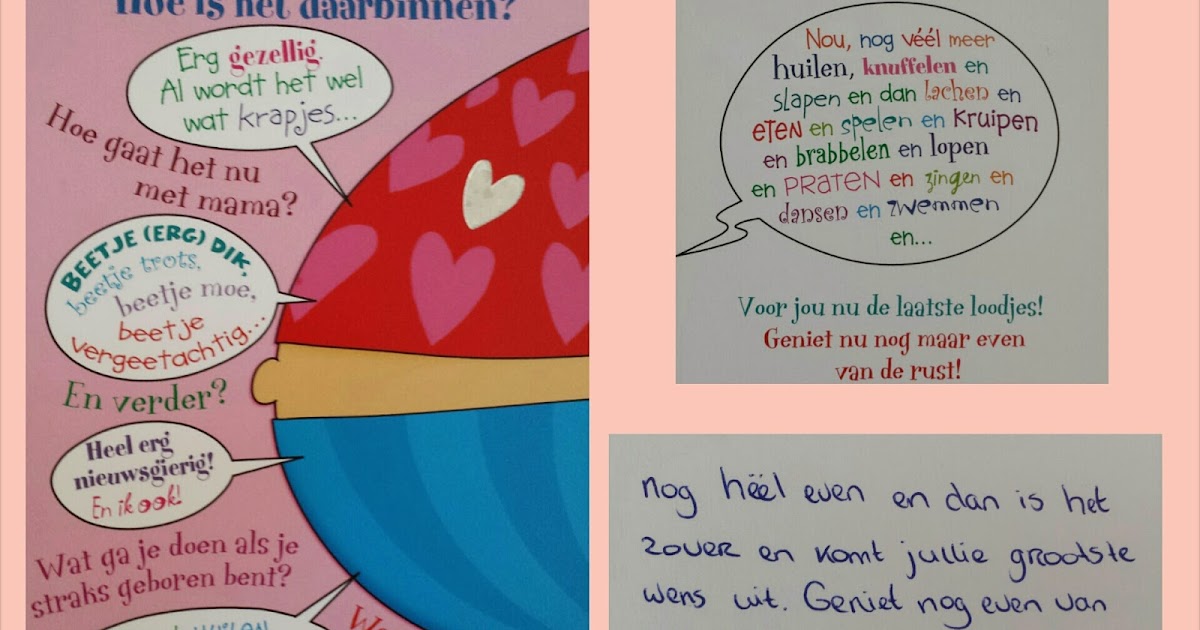 Hoe is het daarbinnen?
Erg gezellig.
Al wordt het wel
wat krapjes...
Hoe gaat het nu
met mama?
BEETJE (ERG) DIK,
beetje trots,
beetje moe,
beetje
vergeetachtig...
En verder?
Heel erg
nieuwsgierig!
En ik ook!
Wat ga je doen als je
straks geboren bent?
Nou, nog véél meer
huilen, knuffelen en
slapen en dan lachen en
ETEN en spelen en kruipen
en brabbelen en lopen
en PRATEN en zingen en
dansen en zwemmen
en...
Voor jou nu de laatste loodjes!
Geniet nu nog maar even
van de rust!
nog héél even en dan is het
zover en komt jullie grootste
wens uit. Geniet nog even van